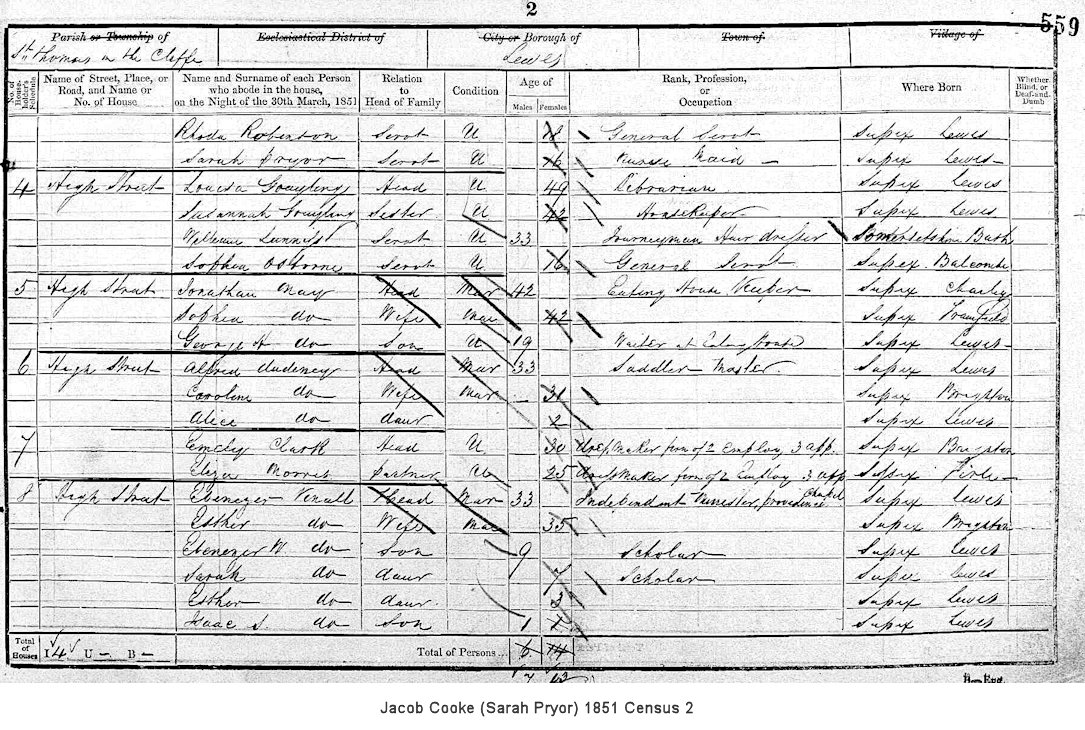 2
559
Parish or Township of Ecclesiastical District of City or Borough of Town of Village of
St Thomas in the Cliffe Lewes
No. of House-holder's Schedule Name of Street, Place, or Road, and Name or No. of House Name and Surname of each Person who abode in the house, on the Night of the 30th March, 1851 Relation to Head of Family Condition Age of Males Females Rank, Profession, or Occupation Where Born Whether Blind, or Deaf-and-Dumb
Rhoda Robinson Servt U 18 General Servt Sussex Lewes
Sarah Pryor Servt U 16 Nurse Maid Sussex Lewes
4 High Street Louisa Grayling Head U 49 Librarian Sussex Lewes
Susannah Grayling Sister U 42 Housekeeper Sussex Lewes
Servt U 33 Journeyman Hair dresser Somersetshire Bath
Sophia Osborne Servt U 16 General Servt Sussex Balcombe
5 High Street Jonathan May Head Mar 42 Eating House Keeper Sussex Chailey
Sophia do Wife Mar 42 Sussex Framfield
George H do Son U 19 Waiter at Eating House Sussex Lewes
6 High Street Alfred Dudeney Head Mar 33 Saddler Master Sussex Lewes
Caroline do Wife Mar 31 Sussex Brighton
Alice do daur 2 Sussex Lewes
7 Emely Clark Head U 30 Dress Maker firm of 2 Employ 3 app. Sussex Brighton
Eliza Morris Partner U 25 Dress Maker firm of 2 Employ 3 app Sussex Firle
8 High Street Ebenezer Vinall Head Mar 33 Independent Minister, Providence Chapel Sussex Lewes
Esther do Wife Mar 35 Sussex Brighton
Ebenezer W do Son 9 Scholar Sussex Lewes
Sarah do daur Scholar Sussex Lewes
Esther do daur. 3 Sussex Lewes
Isaac S. do Son 1 Sussex Lewes
Total of Houses I 4 U – B – Total of Persons... 6 14
7 13
Jacob Cooke (Sarah Pryor) 1851 Census 2